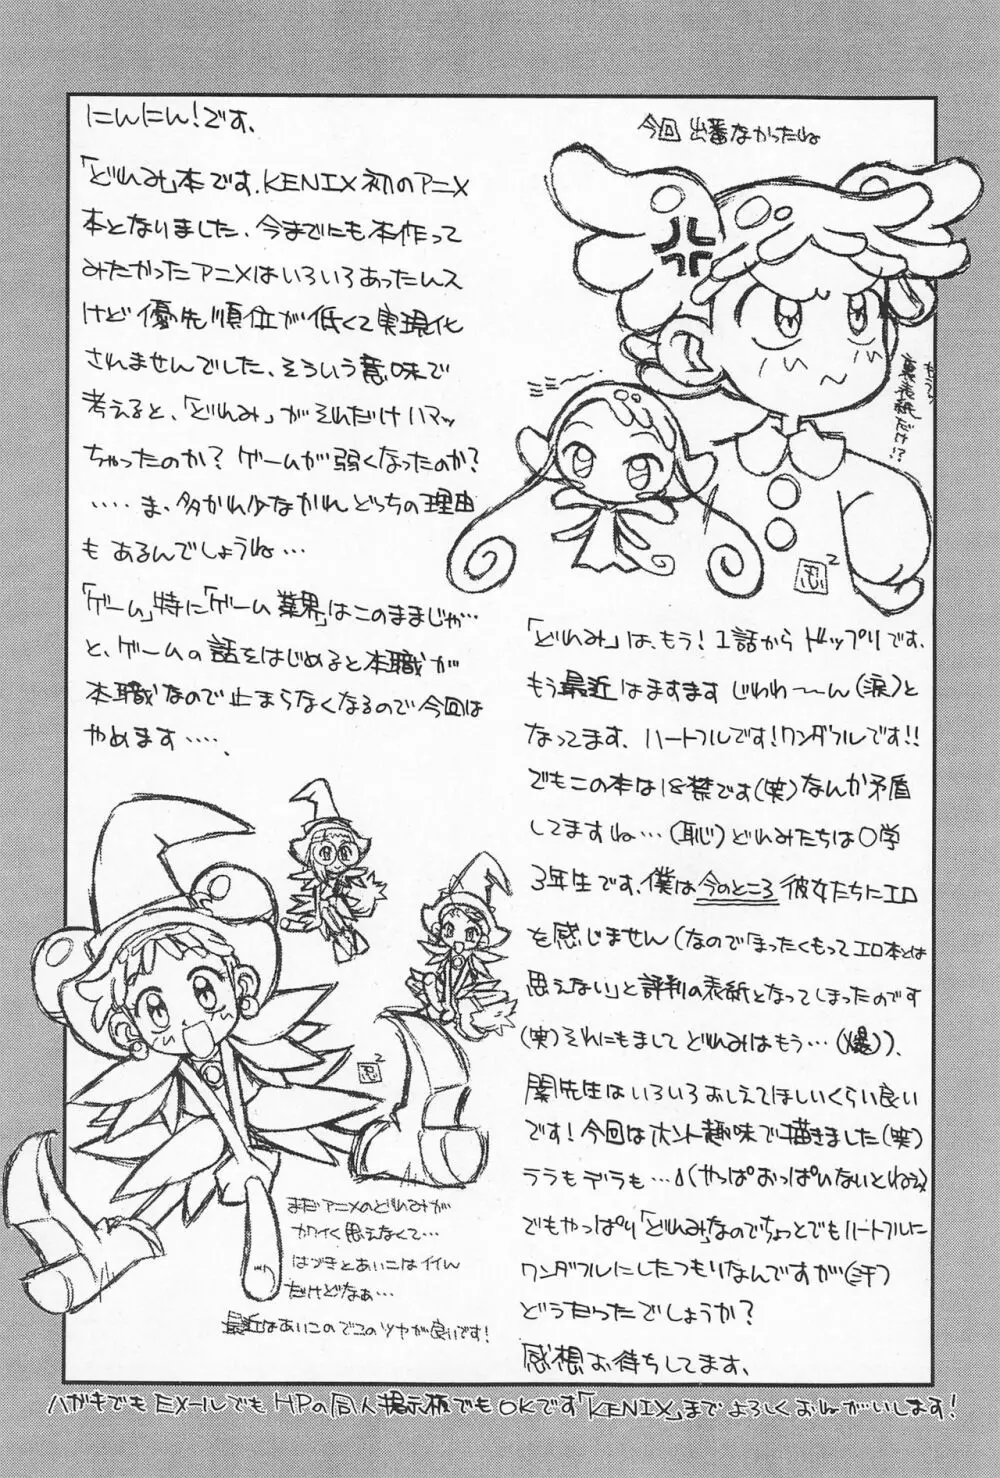 にんにん!です、
「どれみ」本です、KENIX初のアニメ
本となりました、今までにも本作って
みたかったアニメはいろいろあったんス
けど優先順位が低くて実現化
されませんでした、そういう意味で
考えると、「どれみ」がそれだけハマッ
ちゃったのか?ゲームが弱くなったのか?
‥‥ま、多かれ少なかれどっちの理由
もあるんでしょうね…
「ゲーム」特に「ゲーム業界」はこのままじゃ…
と、ゲームの話をはじめると本職が
本職なので止まらなくなるので今回は
やめます‥‥、
今回出番なかったね
もうっ
裏表紙だけ!?
忍2
「どれみ」は、もう!1話からドップリです、
もう最近はますますじわわ〜ん(涙)と
なってます、ハートフルです!ワンダフルです!!
でもこの本は18禁です(笑)なんか矛盾
してますね…(恥)どれみたちは〇学
3年生です、僕は今のところ彼女たちにエロ
を感じません(なので「まったくもってエロ本とは
思えない」と評判の表紙となってしまったのです
(笑)それにもましてどれみはもう…(爆))、
関先生はいろいろおしえてほしいくらい良い
です!今回はホント趣味で描きました(笑)
ララもデラも…(やっぱおっぱいないとねぇ)
でもやっぱり「どれみ」なのでちょっとでもハートフルに
ワンダフルにしたつもりなんですが(汗)
どうだったでしょうか?
感想お待ちしてます、
忍2
まだアニメのどれみが
カワイく思えなくて…
はづきとあいこはイイん
だけどなぁ…
最近はあいこのでこのツヤが良いです!
ハガキでもEメールでもHPの同人掲示板でもOKです「KENIX」までよろしくおねがいします!